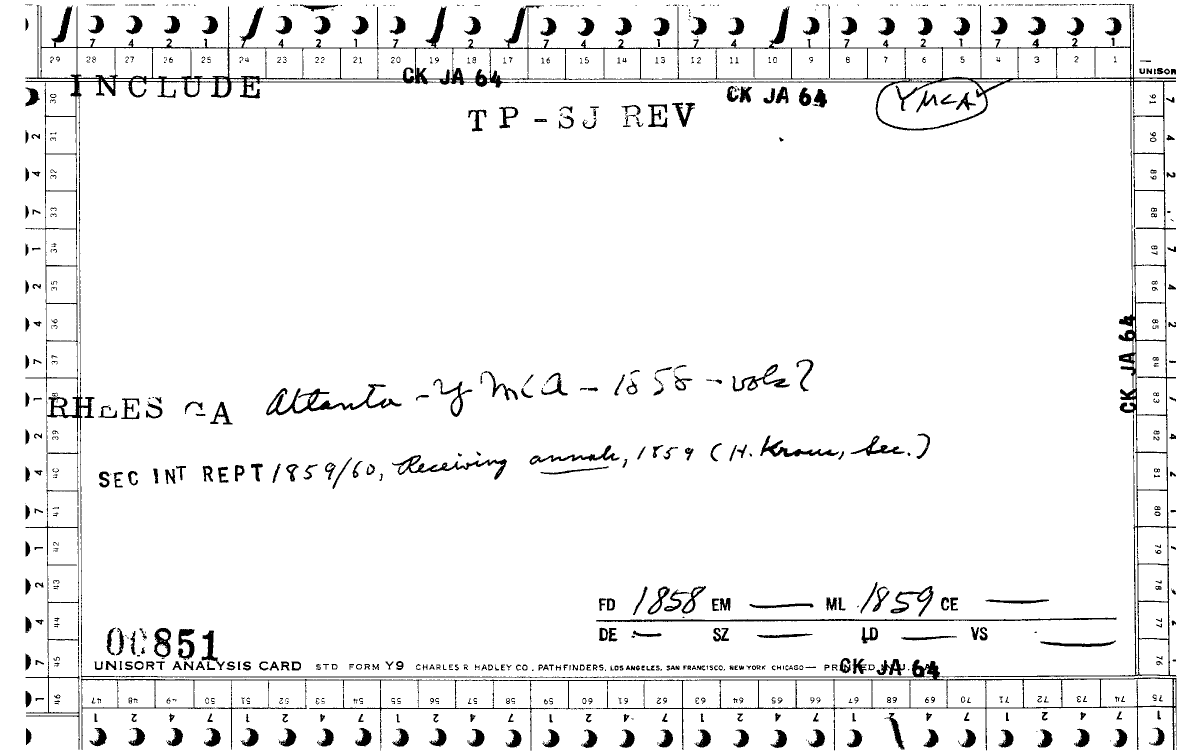 7 4 2 1 7 4 2 1 7 4 2 1 7 4 2 1 7 4 2 1 7 4 2 1 7 4 2 1
29 28 27 26 25 24 23 22 21 20 19 18 17 16 15 14 13 12 11 10 9 8 7 6 5 4 3 2 1
UNISOR
INCLUDE
CK JA 64
CK JA 64
YMCA
TP-SJ REV
CK JA 64
RHEES GA Atlanta - YMCA - 1858 - vols?
SEC INT REPT 1859/60, Receiving annals, 1859 (H. Kraus, Sec.)
FD 1858 EM — ML 1859 CE —
DE — SZ — LD — VS —
00851
UNISORT ANALYSIS CARD STD FORM Y9 CHARLES R HADLEY CO., PATHFINDERS, LOS ANGELES, SAN FRANCISCO, NEW YORK CHICAGO — PRINTED IN U.
CK JA 64
47 48 49 50 51 52 53 54 55 56 57 58 59 60 61 62 63 64 65 66 67 68 69 70 71 72 73 74 75
1 2 4 7 1 2 4 7 1 2 4 7 1 2 4 7 1 2 4 7 1 2 4 7 1 2 4 7 1